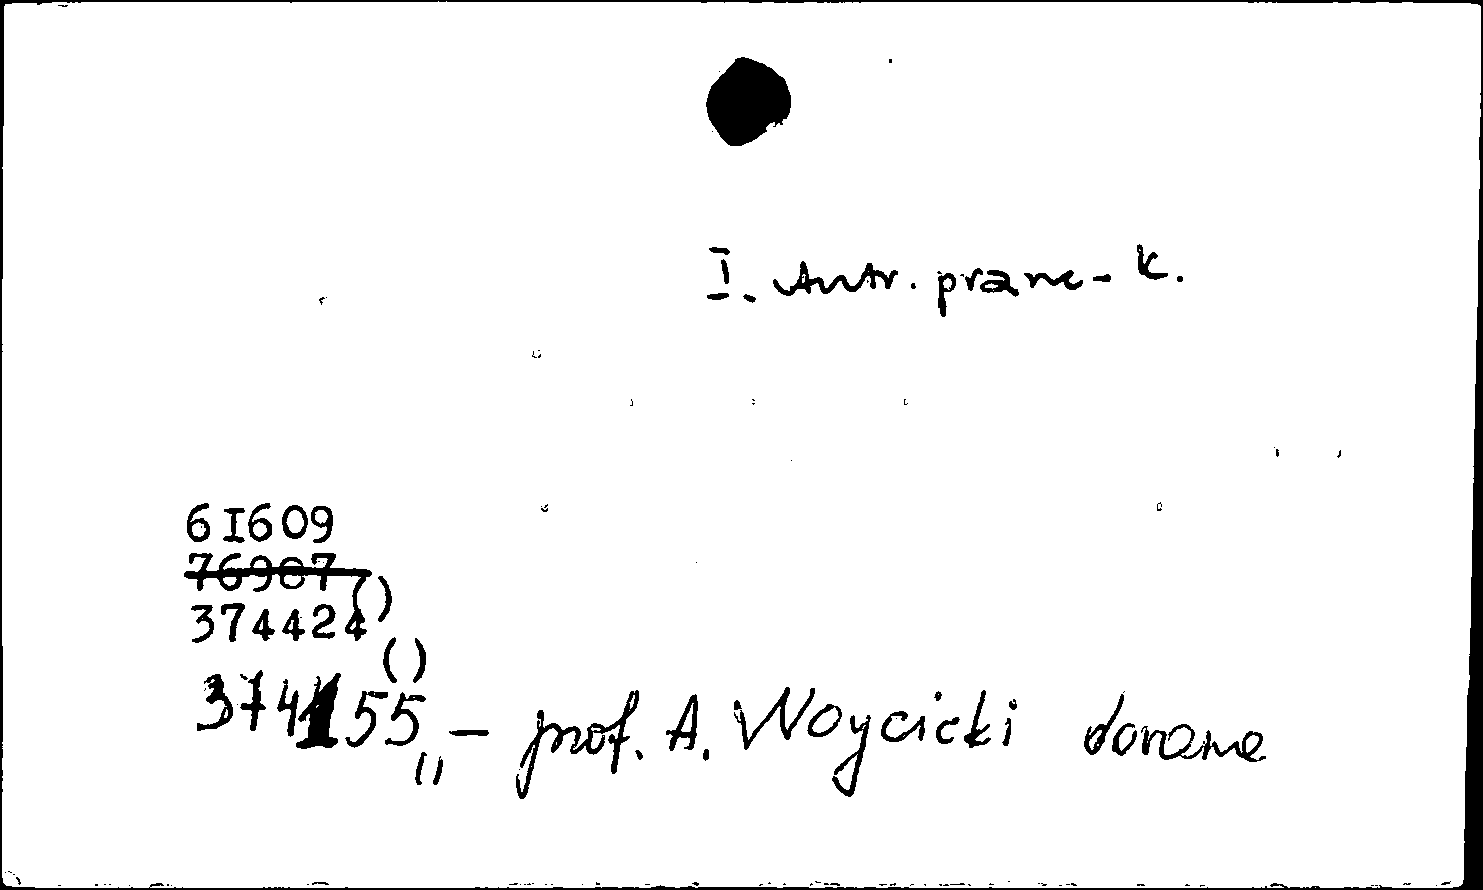 I. Antr. pranc-k.
61609
76987
374424()
()
374155,, — prof. A. Woycicki dovana